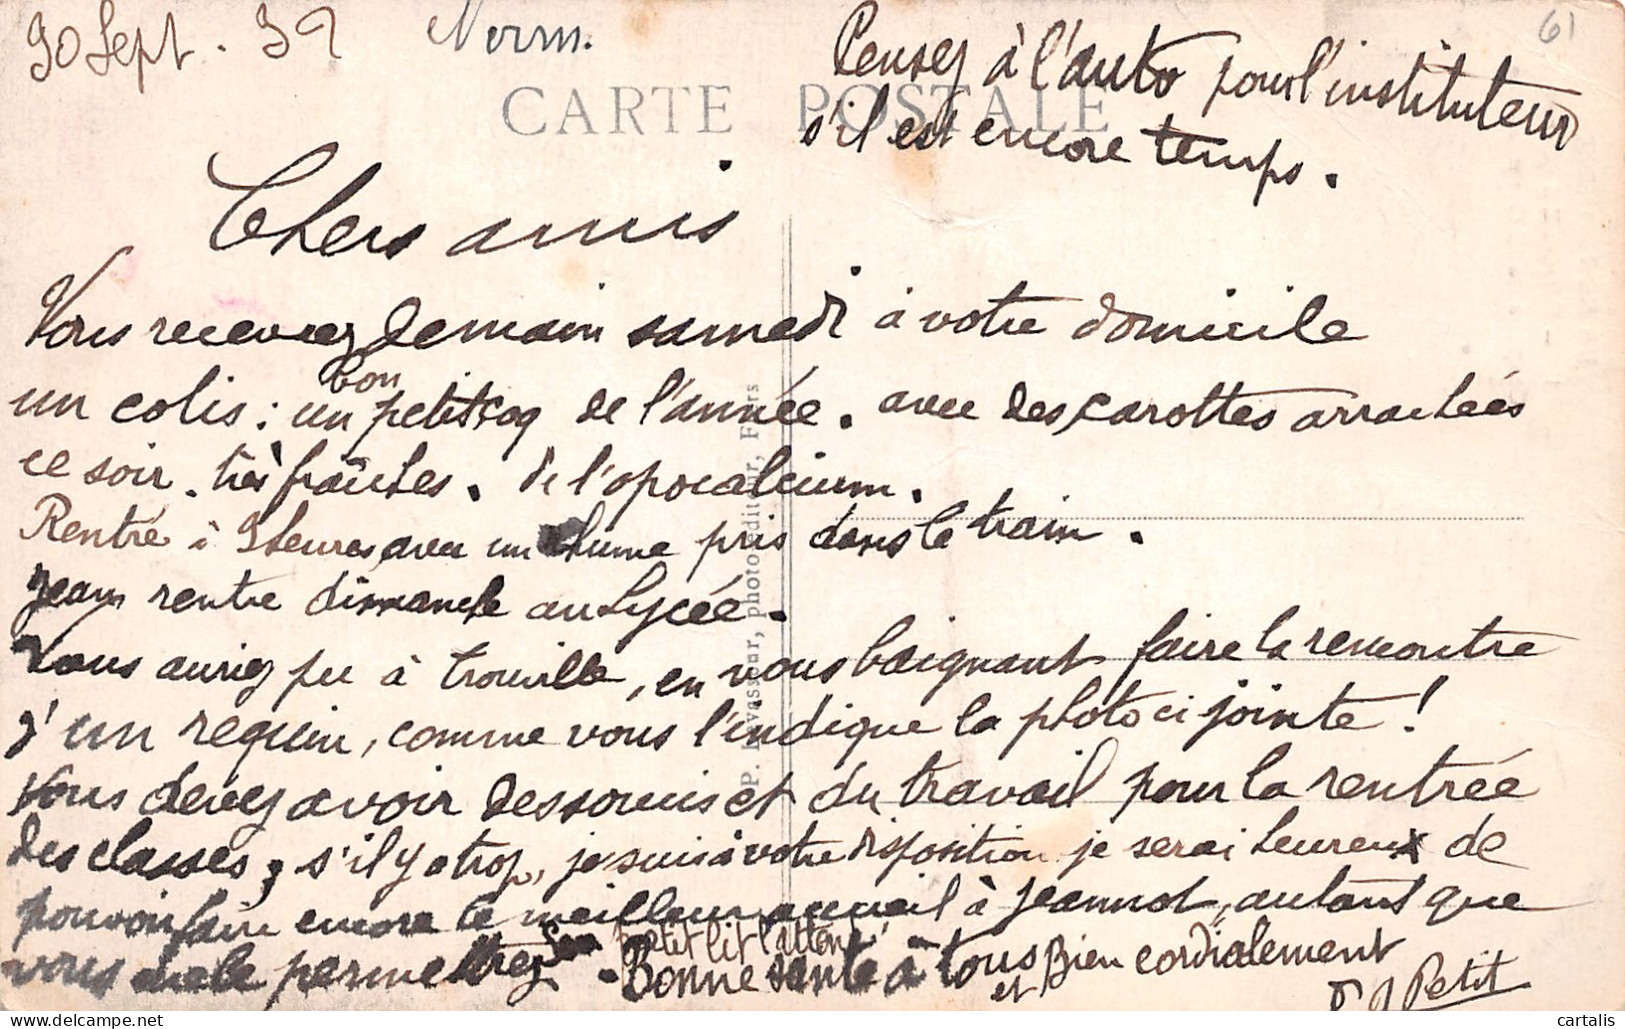 30 Sept. 39
61
CARTE POSTALE
Pensez à l'auto pour l'instituteur
s'il est encore temps.
Chers amis
Vous recevrez demain samedi à votre domicile
un colis : un bon petit coq de l'année. avec des carottes arrachées
ce soir. très fraîches. de l'opocalcium.
Rentré à 9 heures avec un rhume pris dans le train.
Jean rentre dimanche au Lycée.
Vous auriez pu à Trouville, en vous baignant faire la rencontre
d'un requin, comme vous l'indique la photo ci jointe !
Vous devez avoir des soucis et du travail pour la rentrée
des classes, s'il y a trop, je suis à votre disposition je serai heureux de
pouvoir faire encore le meilleur accueil à Jeannot, autant que
vous me le permettrez. Son petit lit l'attend
Bonne santé à tous et Bien cordialement
Petit
photo-éditeur,
cartalis